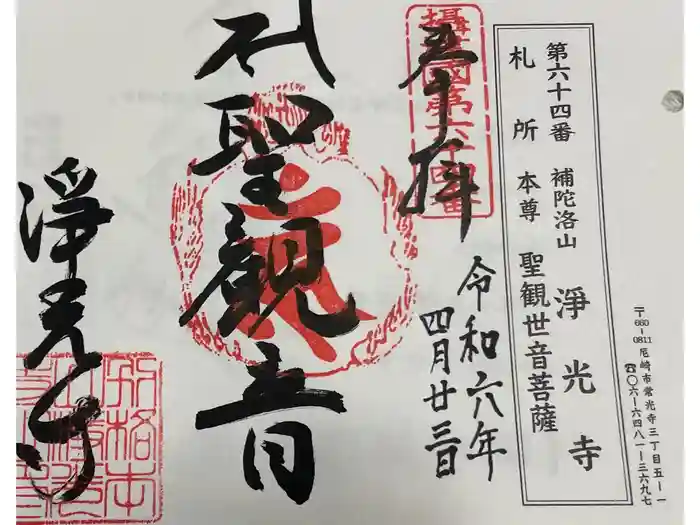 〒660-0811 尼崎市常光寺三丁目五ー一
☎〇六ー六四八一ー三六九七
第六十四番 補陀洛山 淨光寺
札所 本尊 聖観世音菩薩
攝津國第六十四番
奉拝
令和六年
四月廿三日
聖観音
淨光寺